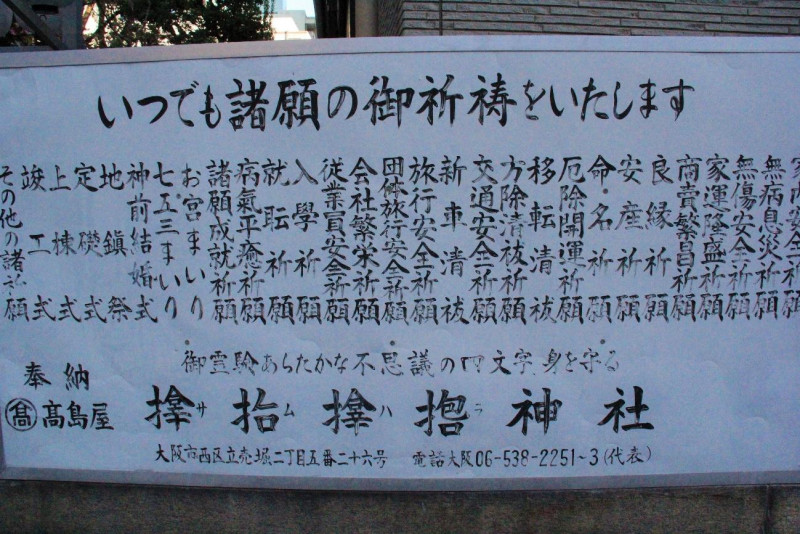 いつでも諸願の御祈祷をいたします
家内安全祈願
無病息災祈願
無傷安全祈願
家運隆盛祈願
商賣繁昌祈願
良縁祈願
安座祈願
命名祈願
厄除開運祈願
移転清祓
方除清祓祈願
交通安全祈願
新車清祓
旅行安全祈願
団体旅行安全祈願
会社繁栄祈願
従業員安全祈願
入學祈願
就転祈願
病氣平癒祈願
諸願成就祈願
お宮まいり
七五三まいり
神前結婚式
地鎮祭
定礎式
上棟式
竣工式
その他の諸祈願
御霊験あらたかな不思議の四文字、身を守る
奉納
髙 髙島屋
𪮇サ抬ム𪮇ハ𪮷ラ神社
大阪市西区立売堀二丁目五番二十六号 電話大阪06-538-2251~3(代表)